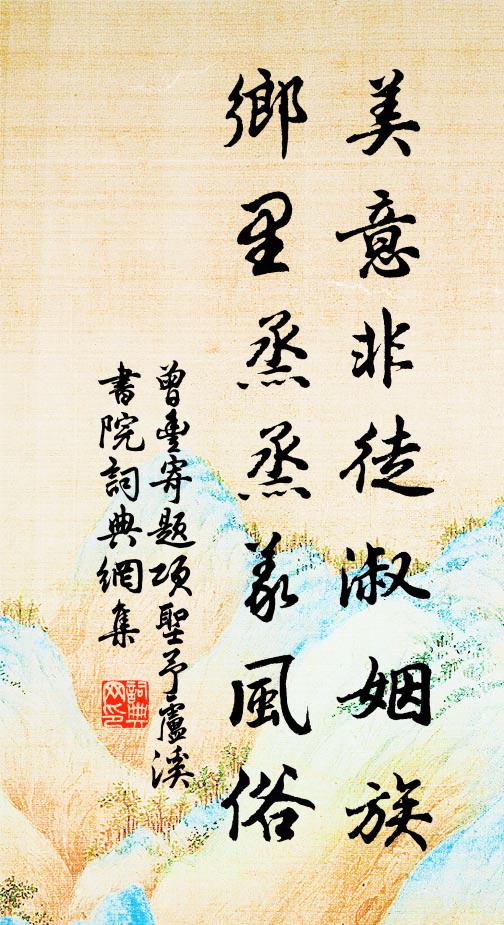 美意非徒淑姻族
鄉里烝烝義風俗
曾豐寄題項聖予盧溪
書院詞典網集
詞典网印